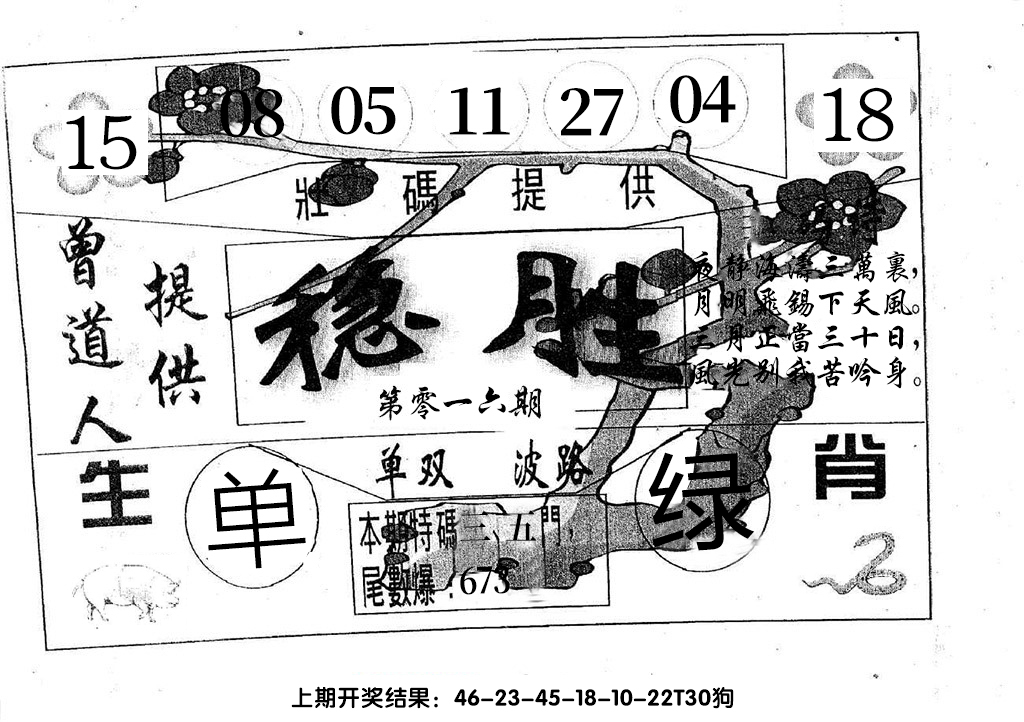 15 08 05 11 27 04 18
壯碼提供
曾道人
提供
稳胜
第零一六期
特
夜静海濤三萬裏，
月明飛錫下天風。
三月正當三十日，
風光别我苦吟身。
单双 波路
生肖
单
绿
本期特碼三、五門，
尾數爆：673
上期开奖结果：46-23-45-18-10-22T30狗